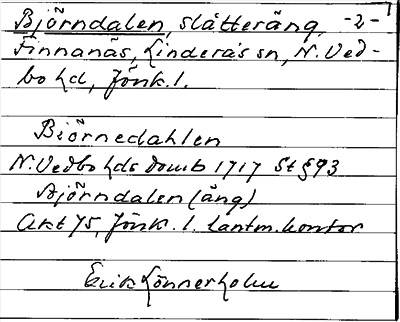 Björndalen, slåtteräng, -2-
Finnanäs, Linderås sn, N. Ved-
bo hd, Jönk. l.
Biörnedahlen
N. Vedbo hds domb 1717 St § 93
Björndalen (äng)
Akt 75, Jönk. l. lantm. kontor
Erik Lönnerholm